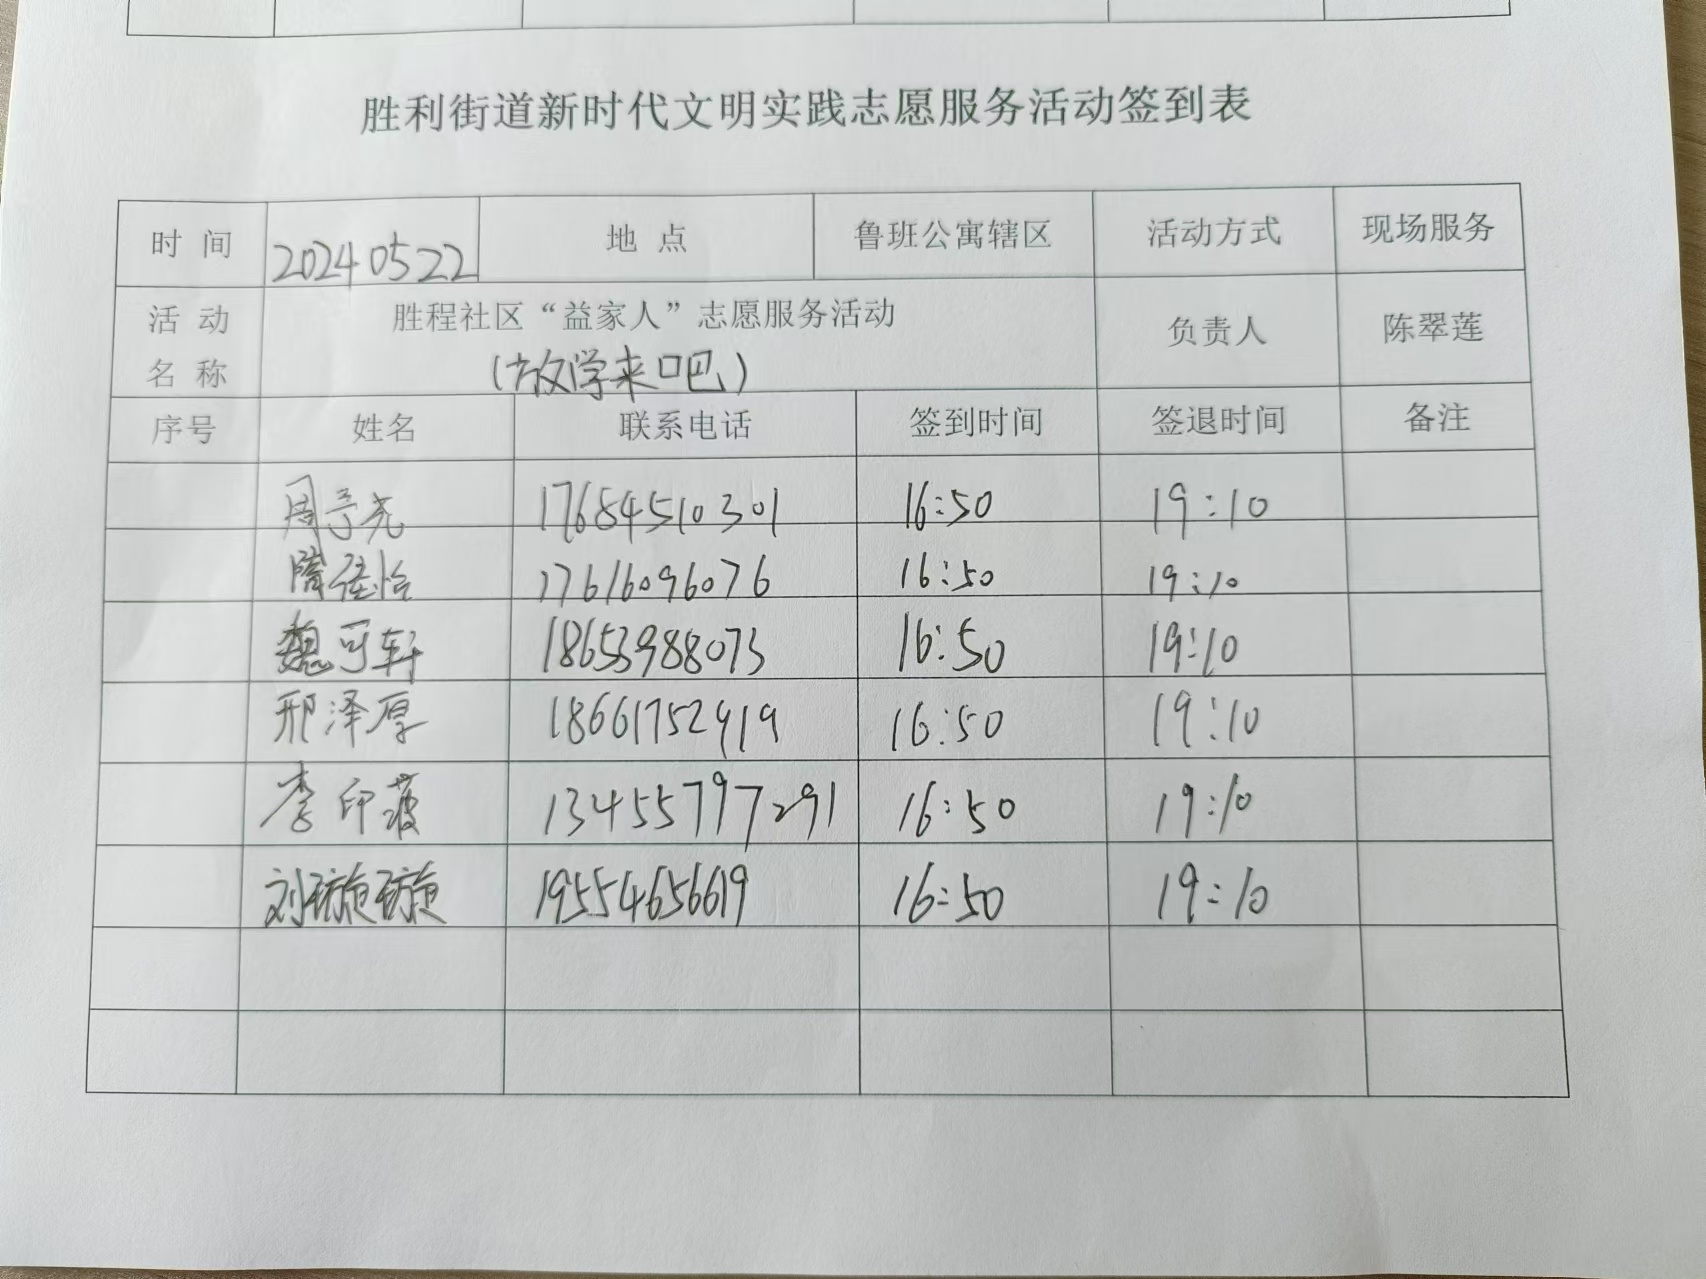 胜利街道新时代文明实践志愿服务活动签到表
时 间 20240522 地 点 鲁班公寓辖区 活动方式 现场服务
活 动 名 称 胜程社区“益家人”志愿服务活动 负责人 陈翠莲
(放学来吧)
序号 姓名 联系电话 签到时间 签退时间 备注
周子尧 17684510301 16:50 19:10
隋佳怡 17616096076 16:50 19:10
魏可轩 18653988073 16:50 19:10
邢泽厚 18661752919 16:50 19:10
李印菠 13455797291 16:50 19:10
刘璇璇 19554656619 16:50 19:10